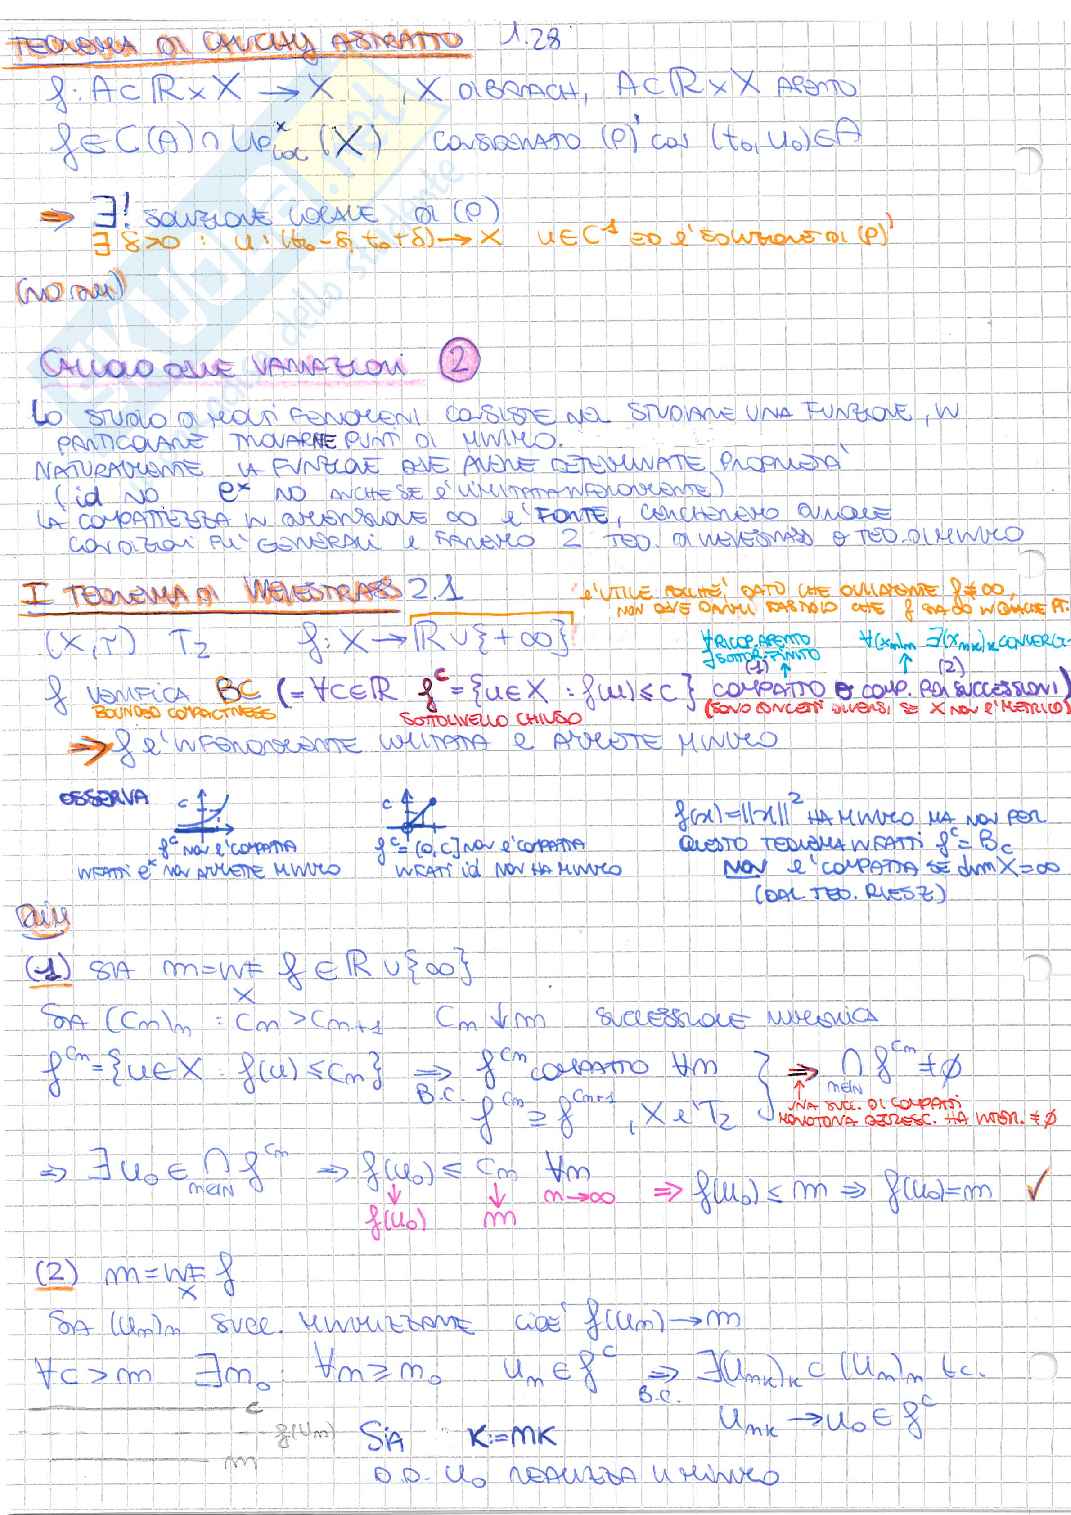 TEOREMA DI CAUCHY ASTRATTO 1.28
f: A⊂ℝ×X → X , X DI BANACH, A⊂ℝ×X APERTO
f∈C(A)∩Lip^x_loc(X) CONSIDERATO (P) CON (t₀,u₀)∈A
⇒ ∃! SOLUZIONE LOCALE DI (P)
∃ δ>0 : u: (t₀-δ, t₀+δ) → X u∈C¹ ED È SOLUZIONE DI (P)
(NO DIM)
CALCOLO DELLE VARIAZIONI 2
LO STUDIO DI MOLTI FENOMENI CONSISTE NEL STUDIARE UNA FUNZIONE, IN
PARTICOLARE TROVARNE PUNTI DI MINIMO.
NATURALMENTE LA FUNZIONE DEVE AVERE DETERMINATE PROPRIETÀ
(id NO e^x NO ANCHE SE È LIMITATA INFERIORMENTE)
LA COMPATTEZZA IN DIMENSIONE ∞ È FORTE, CERCHEREMO DUNQUE
CONDIZIONI PIÙ GENERALI E FAREMO 2 TEO. DI WEIERSTRASS E TEO. DI MINIMO
I TEOREMA DI WEIERSTRASS 2.1
È UTILE POICHÉ DATO CHE OVVIAMENTE f≢∞,
NON DEVE DARMI FASTIDIO CHE f SIA ∞ IN QUALCHE PT.
(X,τ) T₂ f: X→ℝ∪{+∞}
∀RICOP. APERTO ∃SOTTOR. FINITO (1) ∀(xₙ)ₙ ∃(xₙₖ)ₖ CONVERG. (2)
f VERIFICA BC (= ∀c∈ℝ f^c={u∈X : f(u)≤c} COMPATTO O COMP. PER SUCCESSIONI)
BOUNDED COMPACTNESS SOTTOLIVELLO CHIUSO (SONO CONCETTI DIVERSI SE X NON È METRICO)
⇒ f È INFERIORMENTE LIMITATA E AMMETTE MINIMO
OSSERVA c c f(x)=||x||² HA MINIMO MA NON PER
f^c NON È COMPATTA f^c=(0,c] NON È COMPATTA QUESTO TEOREMA INFATTI f^c=B_c
INFATTI e^x NON AMMETTE MINIMO INFATTI id NON HA MINIMO NON È COMPATTA SE dim X=∞
(DAL TEO. RIESZ)
DIM
(1) SIA m=INF_X f ∈ℝ∪{∞}
SIA (cₙ)ₙ : cₙ>cₙ₊₁ cₙ↓m SUCCESSIONE NUMERICA
f^cₙ={u∈X : f(u)≤cₙ} ⇒ B.C. f^cₙ COMPATTO ∀n ⇒ ∩_{n∈ℕ} f^cₙ≠∅
f^cₙ ⊇ f^cₙ₊₁ , X È T₂ UNA SUCC. DI COMPATTI
MONOTONA DECRESC. HA INTER. ≠∅
⇒ ∃u₀∈∩_{n∈ℕ} f^cₙ ⇒ f(u₀) ≤ cₙ ∀n ⇒ f(u₀)≤m ⇒ f(u₀)=m ✓
↓ f(u₀) ↓ m n→∞
(2) m=INF_X f
SIA (uₙ)ₙ SUCC. MINIMIZZANTE CIOÈ f(uₙ)→m
∀c>m ∃n₀: ∀n≥n₀ uₙ∈f^c ⇒ B.C. ∃(uₙₖ)ₖ⊂(uₙ)ₙ t.c.
c uₙₖ→u₀∈f^c
f(uₙ) SIA K:=nK
m
O.D. u₀ REALIZZA IL MINIMO